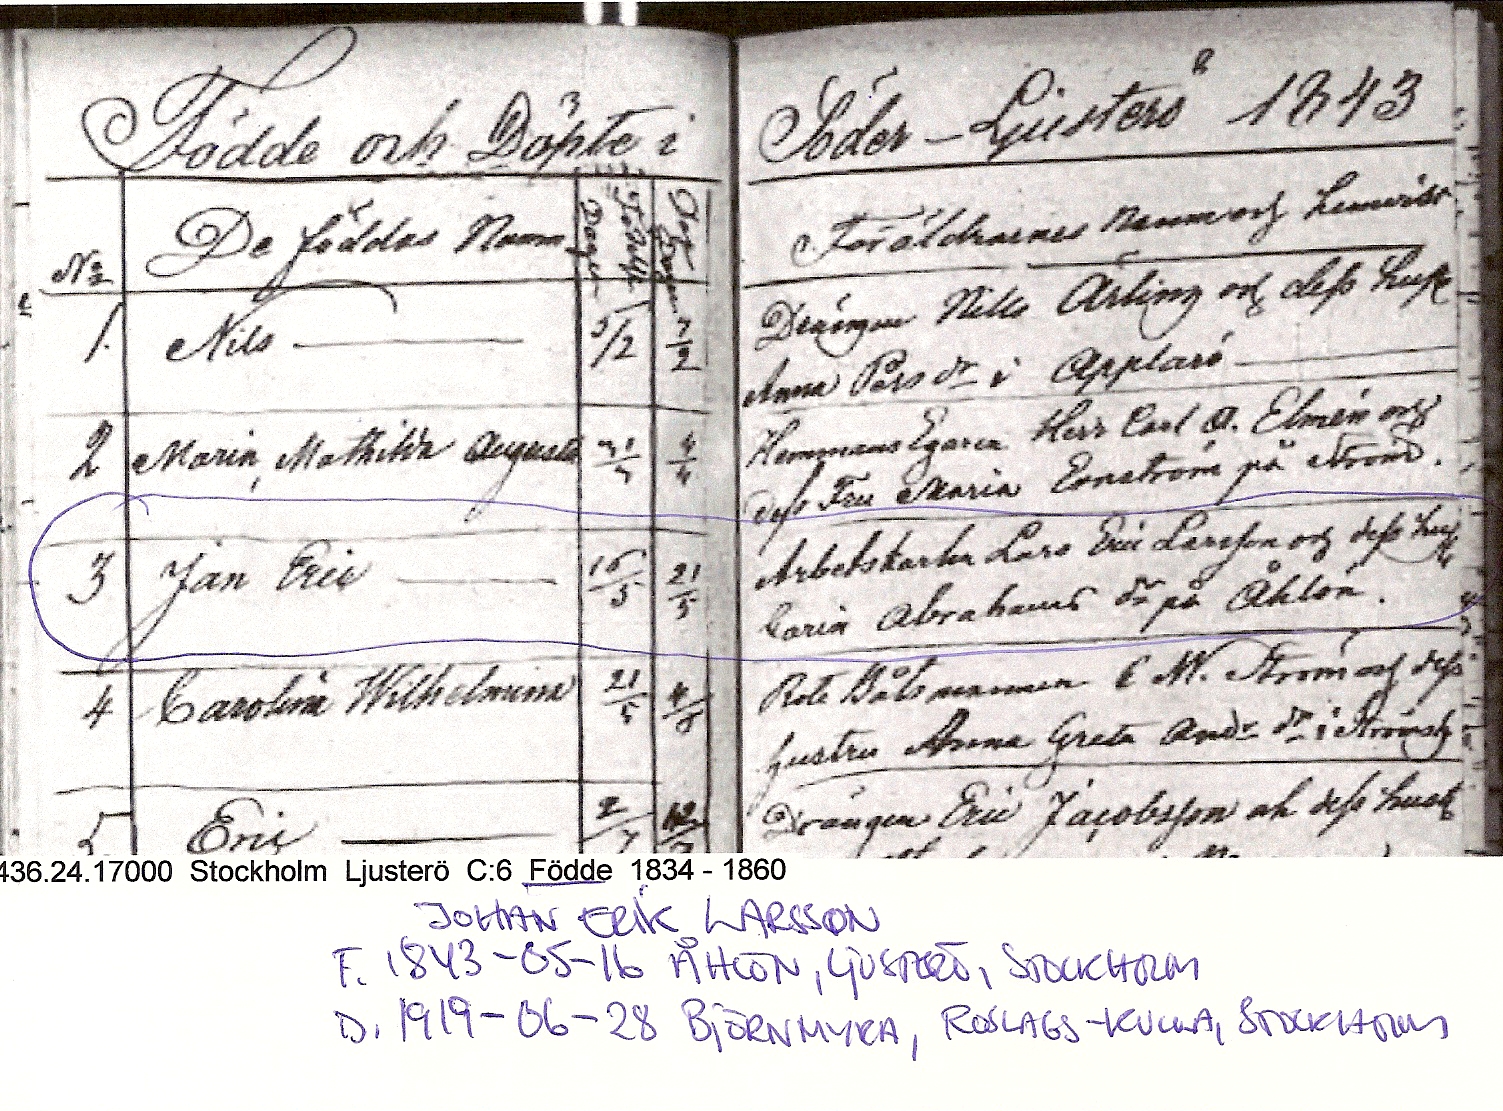 Födde och Döpte i Söder-Ljusterö 1843
No De föddas Namn Föräldrarnes Namn och
1. Nils 5/2 7/2 Drängen Nils Årling och dess hust
Anna Pers dr i Applarö
2 Maria, Mathilda Augusta Hemmans Egaren Herr Carl A. Elmén och
dess Fru Maria på Ström.
3 Jan Eric 16/5 21/5 Arbetskarlen Lars Eric Larsson och dess hust
Carin Abrahams dr på Åhlön.
4 Carolina Wilhelmina 21/5 Rote Båtsmannen C M. Ström och dess
hustru Anna Greta And. dr i
5 Eric 2/7 Drängen Eric Jacobsson och dess hust
436.24.17000 Stockholm Ljusterö C:6 Födde 1834 - 1860
JOHAN ERIK LARSSON
F. 1843-05-16 ÅHLÖN, LJUSTERÖ, STOCKHOLM
D. 1919-06-28 BJÖRNMYRA, ROSLAGS-KULLA, STOCKHOLM